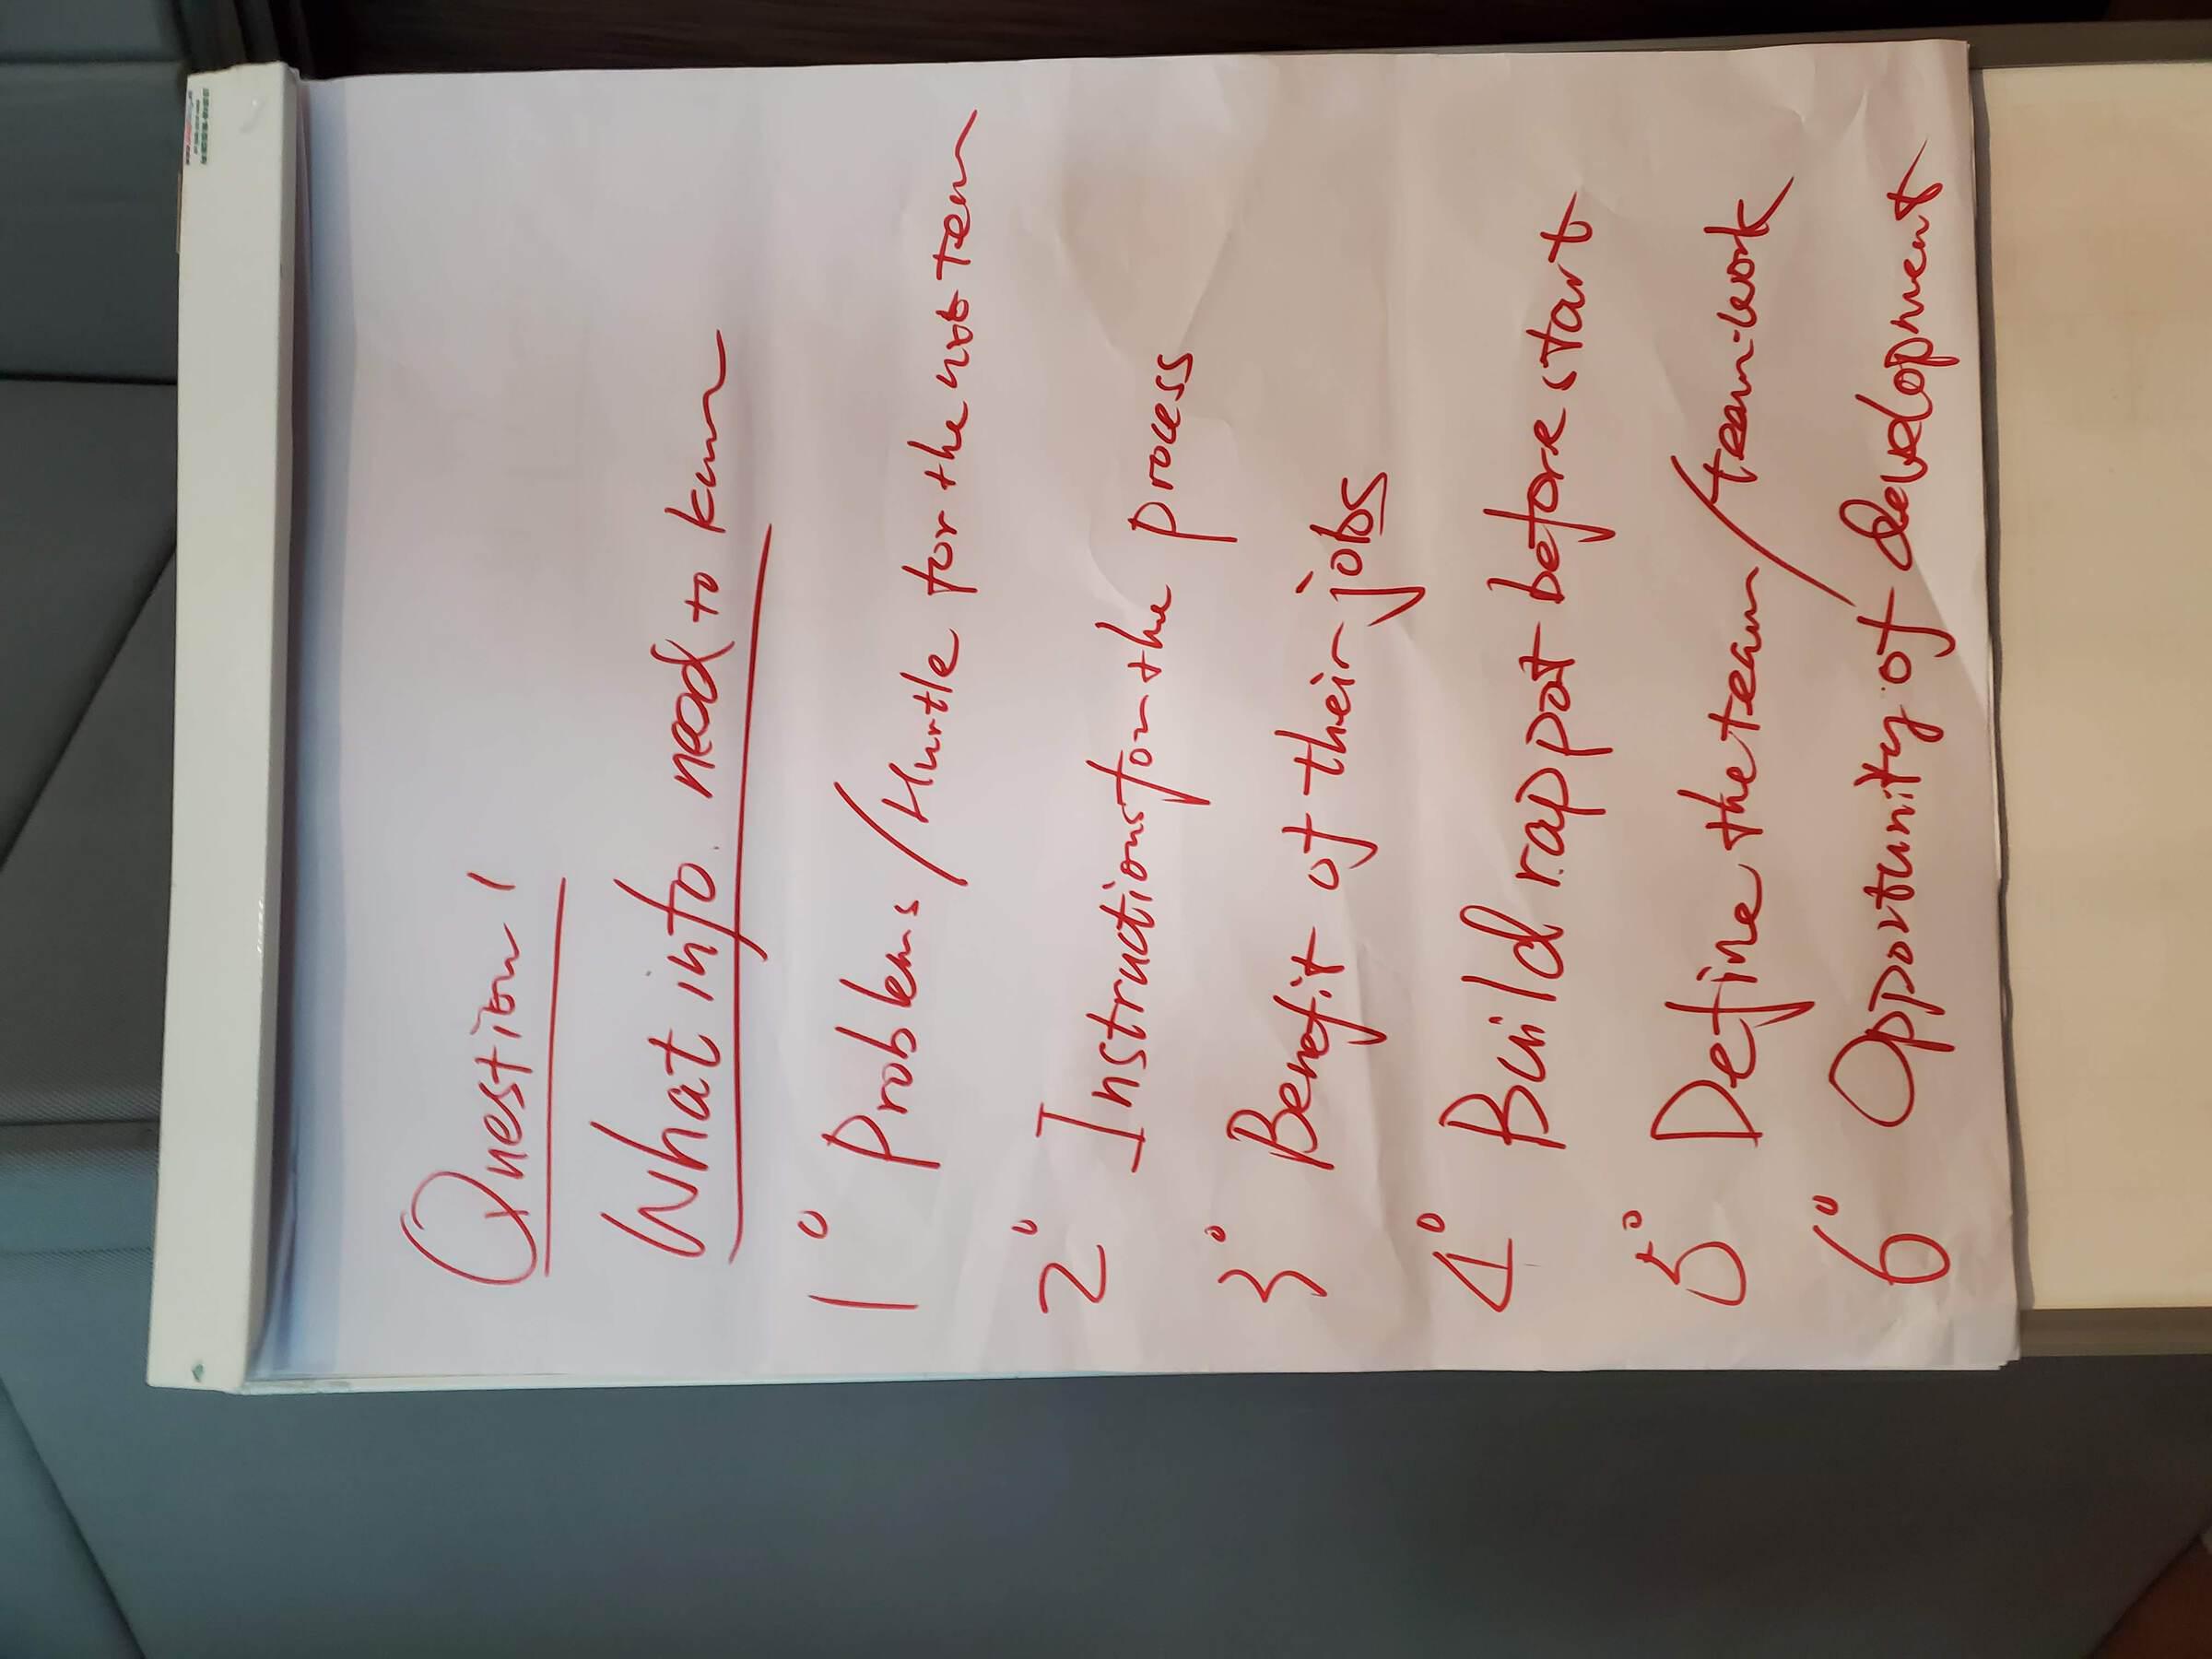 Question 1
What info. need to know
1° Problems / Hurtle for the
2° Instructions for the process
3° Benefit of their jobs
4° Build rappot before start
5° Define the team / team-work
6° Opportunity of development